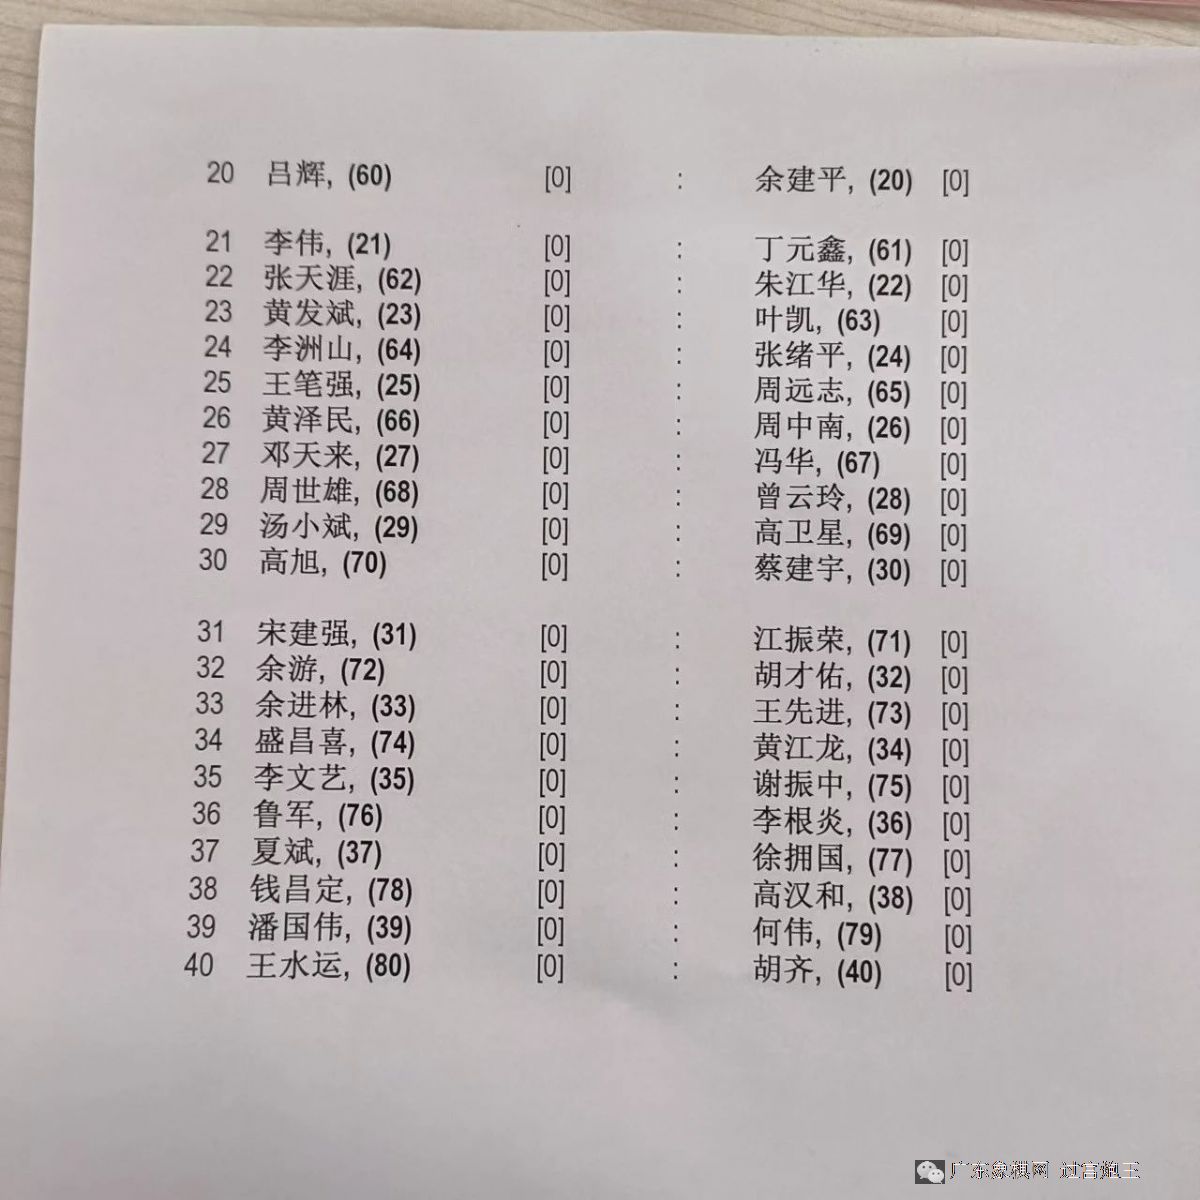 20 吕辉, (60) [0] : 余建平, (20) [0]
21 李伟, (21) [0] : 丁元鑫, (61) [0]
22 张天涯, (62) [0] : 朱江华, (22) [0]
23 黄发斌, (23) [0] : 叶凯, (63) [0]
24 李洲山, (64) [0] : 张绪平, (24) [0]
25 王笔强, (25) [0] : 周远志, (65) [0]
26 黄泽民, (66) [0] : 周中南, (26) [0]
27 邓天来, (27) [0] : 冯华, (67) [0]
28 周世雄, (68) [0] : 曾云玲, (28) [0]
29 汤小斌, (29) [0] : 高卫星, (69) [0]
30 高旭, (70) [0] : 蔡建宇, (30) [0]
31 宋建强, (31) [0] : 江振荣, (71) [0]
32 余游, (72) [0] : 胡才佑, (32) [0]
33 余进林, (33) [0] : 王先进, (73) [0]
34 盛昌喜, (74) [0] : 黄江龙, (34) [0]
35 李文艺, (35) [0] : 谢振中, (75) [0]
36 鲁军, (76) [0] : 李根炎, (36) [0]
37 夏斌, (37) [0] : 徐拥国, (77) [0]
38 钱昌定, (78) [0] : 高汉和, (38) [0]
39 潘国伟, (39) [0] : 何伟, (79) [0]
40 王水运, (80) [0] : 胡齐, (40) [0]
广东象棋网 过宫炮王